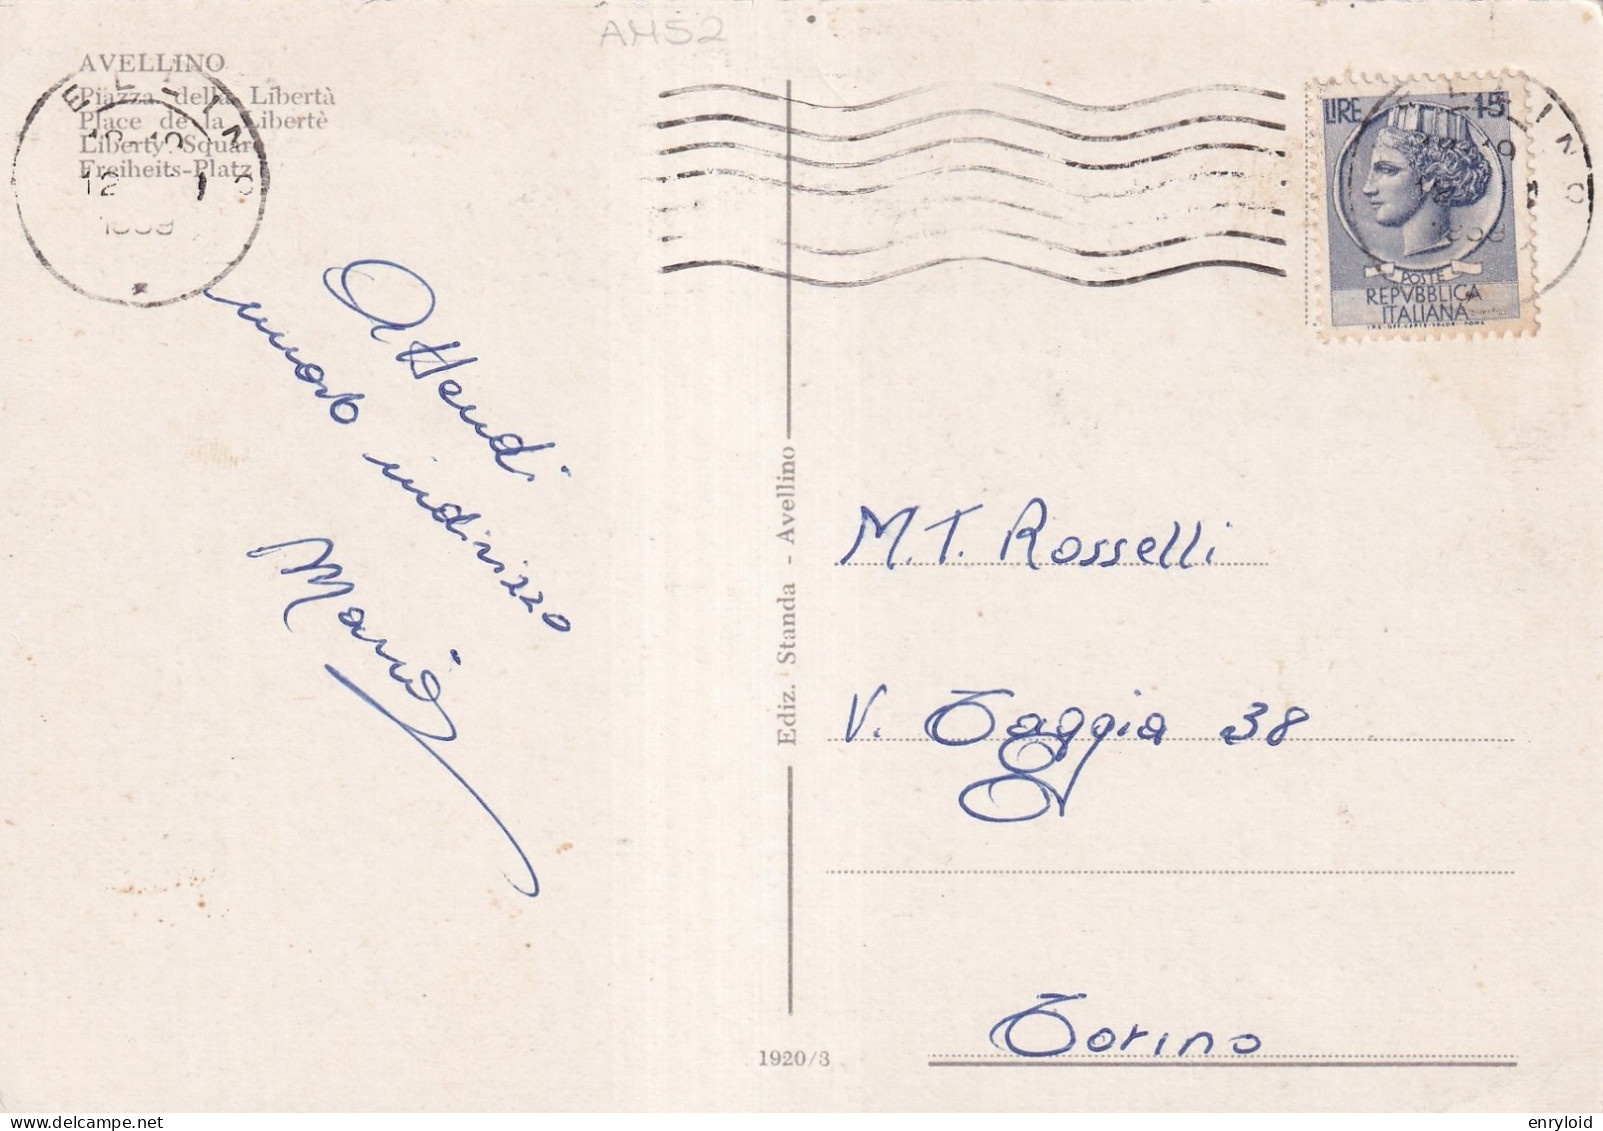 AM52
AVELLINO
Piazza della Libertà
Place de la Libertè
Liberty Square
Freiheits-Platz
ELLINO
12
1959
LIRE 15
POSTE
REPVBBLICA
ITALIANA
Attendi
nuovo indirizzo
Mario
Ediz. Standa - Avellino
M.T. Rosselli
V. Taggia 38
Torino
1920/3
enryloid